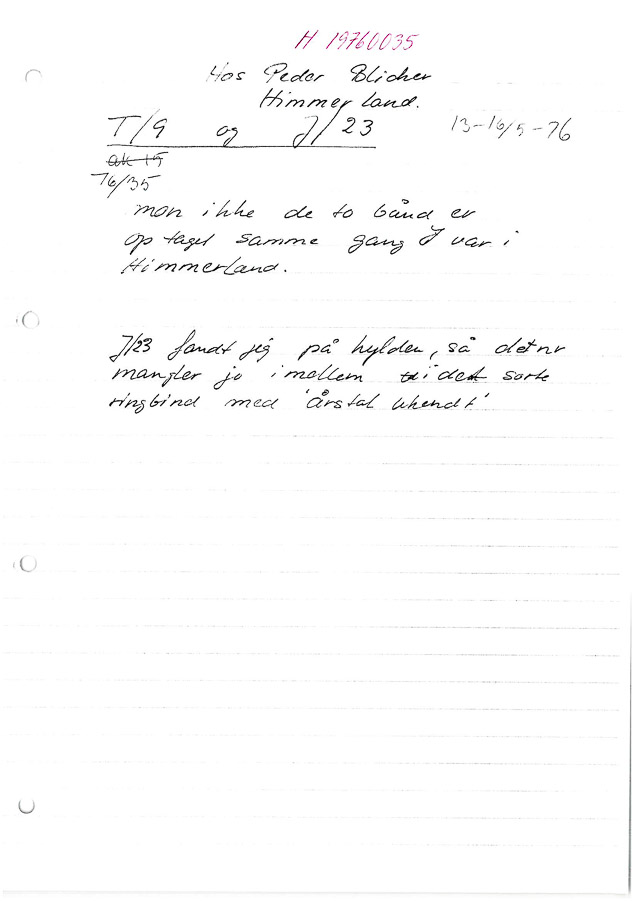 H 19760035
Hos Peder Blicher
Himmerland.
T/9 og J/23 13-16/5-76
ak 15
76/35
mon ikke de to bånd er
optaget samme gang I var i
Himmerland.
J/23 fandt jeg på hylden, så det nr
mangler jo imellem i det sorte
ringbind med 'årstal ukendt'